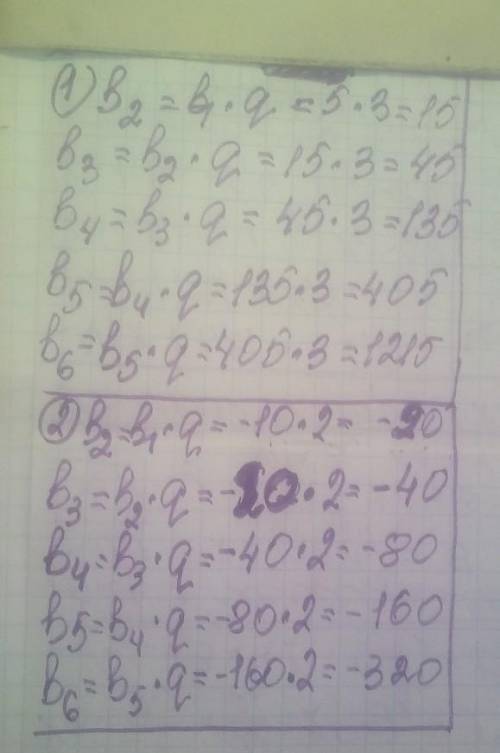 1) b₂ = b₁ · q = 5 · 3 = 15
b₃ = b₂ · q = 15 · 3 = 45
b₄ = b₃ · q = 45 · 3 = 135
b₅ = b₄ · q = 135 · 3 = 405
b₆ = b₅ · q = 405 · 3 = 1215
2) b₂ = b₁ · q = -10 · 2 = -20
b₃ = b₂ · q = -20 · 2 = -40
b₄ = b₃ · q = -40 · 2 = -80
b5 = b₄ · q = -80 · 2 = -160
b₆ = b₅ · q = -160 · 2 = -320